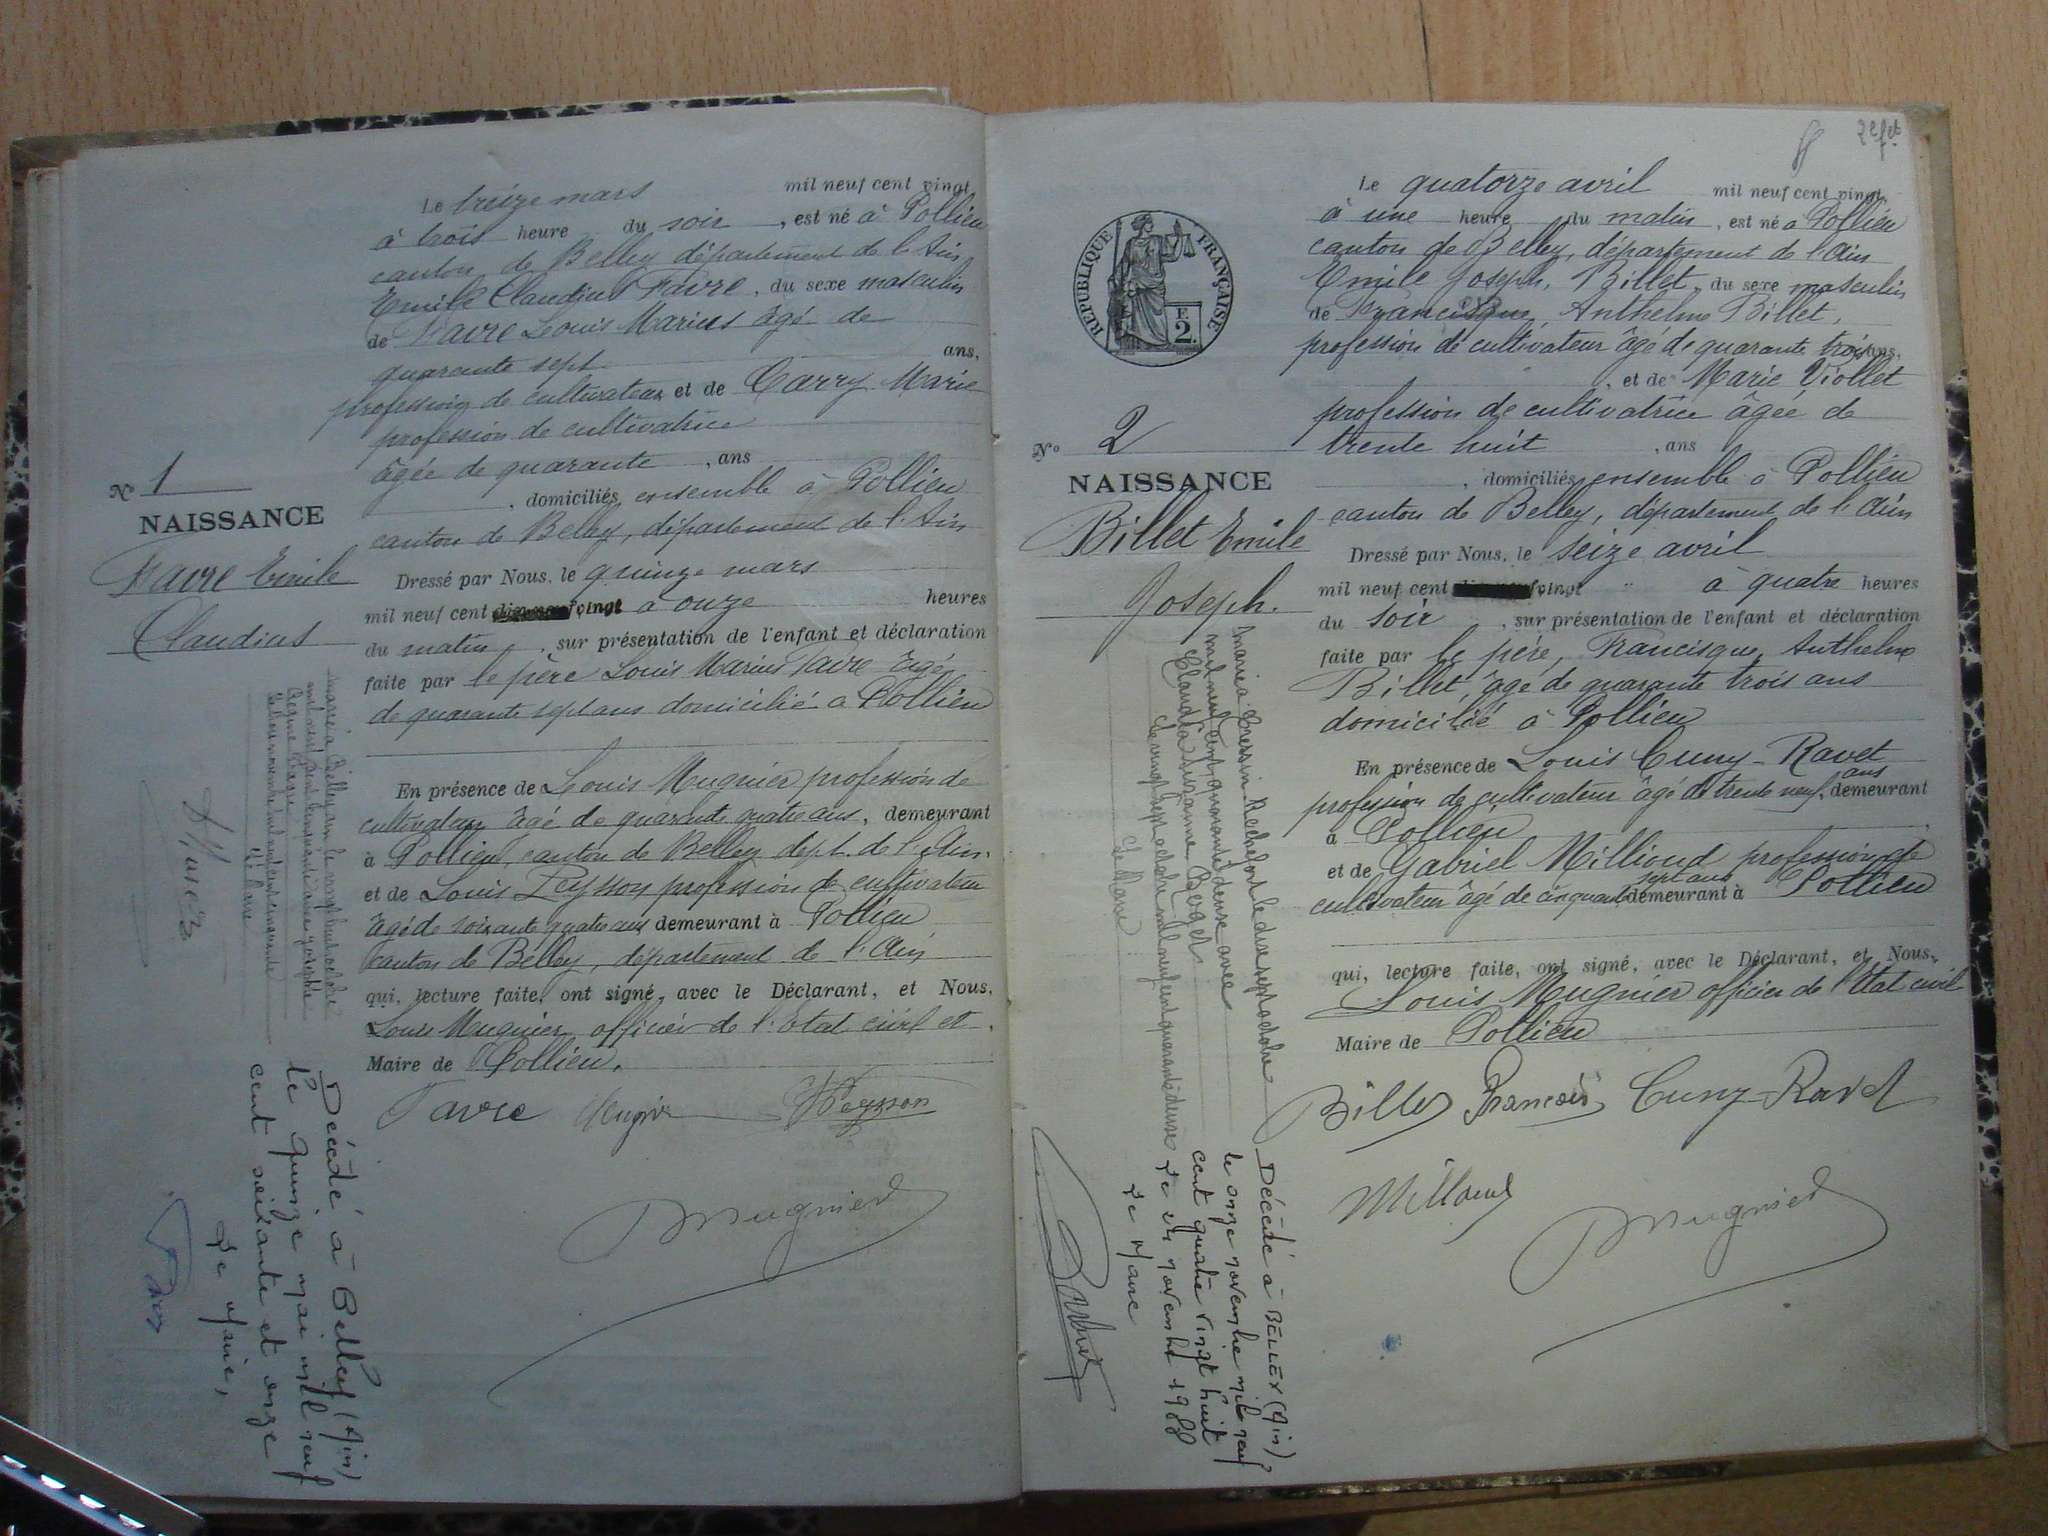 Le treize mars mil neuf cent vingt
à trois heure du soir, est né à Pollieu
canton de Belley département de l'Ain
Emile Claudius Favre, du sexe masculin
de Favre Louis Marius âgé de
quarante sept ans,
profession de cultivateur et de Carry Marie
profession de cultivatrice
âgée de quarante, ans
, domiciliés ensemble à Pollieu
canton de Belley, département de l'Ain
No 1
NAISSANCE
Favre Emile
Claudius
Dressé par Nous, le quinze mars
mil neuf cent vingt à onze heures
du matin, sur présentation de l'enfant et déclaration
faite par le père Louis Marius Favre âgé
de quarante sept ans domicilié à Pollieu
En présence de Louis Mugnier profession de
cultivateur âgé de quarante quatre ans, demeurant
à Pollieu, canton de Belley dept. de l'Ain.
et de Louis Peysson profession de cultivateur
âgé de soixante quatre ans demeurant à Pollieu
canton de Belley, département de l'Ain
qui, lecture faite, ont signé, avec le Déclarant, et Nous,
Louis Mugnier officier de l'Etat civil et
Maire de Pollieu.
Favre Mugnier Peysson
Mugnier
Marié à Belley
Le Maire
Décédé à Belley (Ain)
le quinze mai mil neuf
cent soixante et onze
Le Maire,
22 f et
Le quatorze avril mil neuf cent vingt,
à une heure du matin, est né à Pollieu
canton de Belley, département de l'Ain
Emile Joseph, Billet, du sexe masculin
de Francisque Anthelme Billet,
profession de cultivateur âgé de quarante trois ans,
, et de Marie Viollet
profession de cultivatrice âgée de
trente huit, ans
, domiciliés ensemble à Pollieu
canton de Belley, département de l'Ain
RÉPUBLIQUE FRANÇAISE
E
2.
No 2
NAISSANCE
Billet Emile
Joseph.
Dressé par Nous, le seize avril
mil neuf cent vingt à quatre heures
du soir, sur présentation de l'enfant et déclaration
faite par le père, Francisque, Anthelme
Billet, âgé de quarante trois ans
domicilié à Pollieu
En présence de Louis Cuny-Ravet
profession de cultivateur âgé de trente neuf ans, demeurant
à Pollieu
et de Gabriel Milliond profession de
cultivateur âgé de cinquante sept ans demeurant à Pollieu
qui, lecture faite, ont signé, avec le Déclarant, et Nous,
Louis Mugnier officier de l'Etat civil
Maire de Pollieu
Billet François Cuny-Ravet
Mugnier
Marié à Cressin Rochefort le dix sept octobre
mil neuf cent quarante deux avec
Claudia Suzanne Berger
Le vingt sept octobre mil neuf cent quarante deux
Le Maire
Décédé à BELLEY (Ain),
le onze novembre mil neuf
cent quatre vingt huit
Le novembre 1988
Le Maire